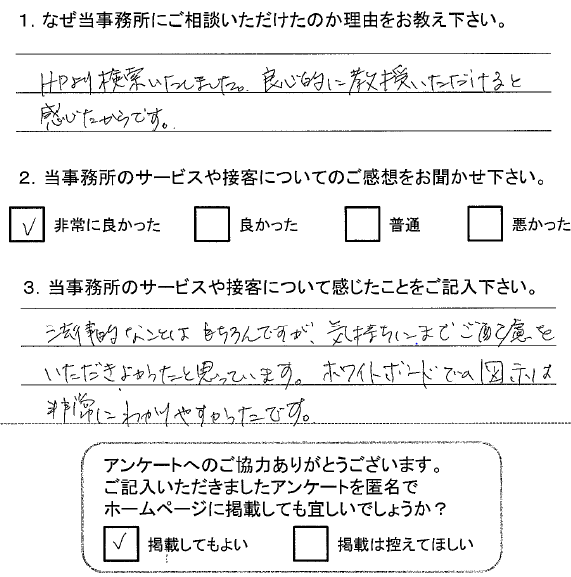 1. なぜ当事務所にご相談いただけたのか理由をお教え下さい。
HPより検索いたしました。良心的に教授いただけると
感じたからです。
2. 当事務所のサービスや接客についてのご感想をお聞かせ下さい。
✓ 非常に良かった 良かった 普通 悪かった
3. 当事務所のサービスや接客について感じたことをご記入下さい。
法律事的なことはもちろんですが、気持ちにまでご配慮を
いただきよかったと思っています。ホワイトボードでの図示は
非常にわかりやすかったです。
アンケートへのご協力ありがとうございます。
ご記入いただきましたアンケートを匿名で
ホームページに掲載しても宜しいでしょうか？
✓ 掲載してもよい 掲載は控えてほしい